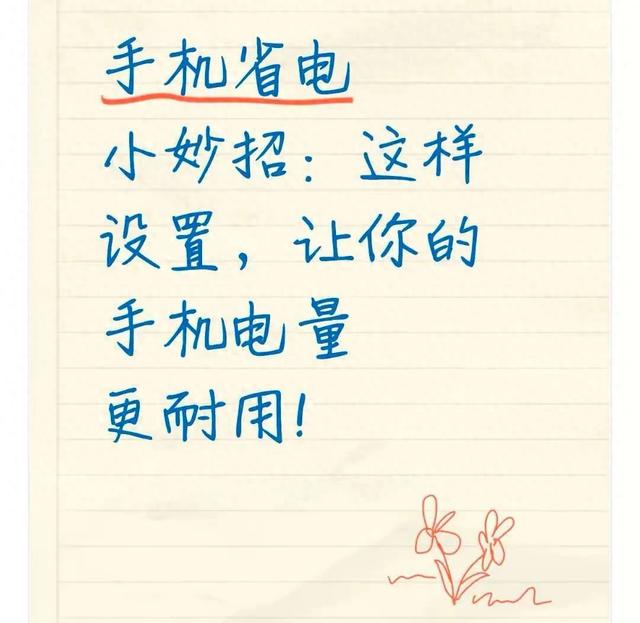 手机省电
小妙招：这样
设置，让你的
手机电量
更耐用！